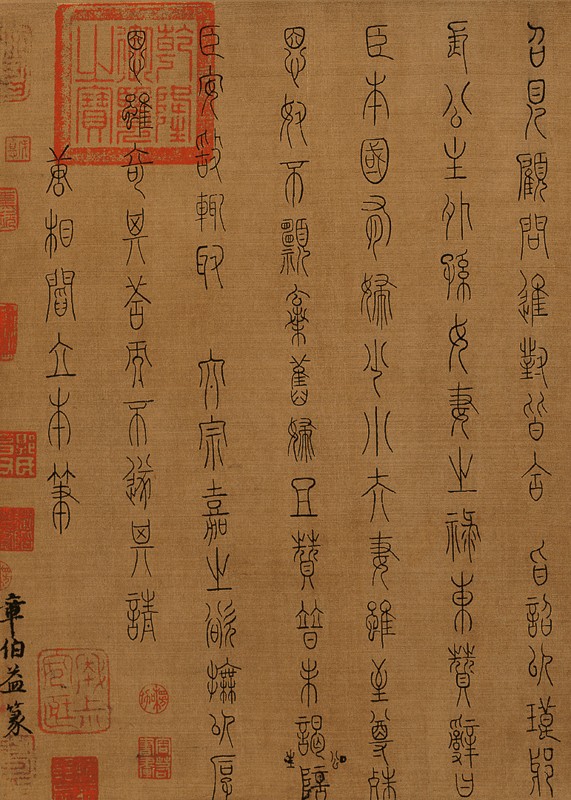 召見顧問進對皆合 旨詔以瑯琊
長公主外孫女妻之祿東贊辭曰
臣本國有婦少小夫妻雖至尊殊
恩奴不願棄舊婦且贊普未謁公主陪
臣安敢輒取 太宗嘉之欲撫以厚
恩雖奇其答而不遂其請
唐相閻立本筆
章伯益篆
乾隆御覽之寶